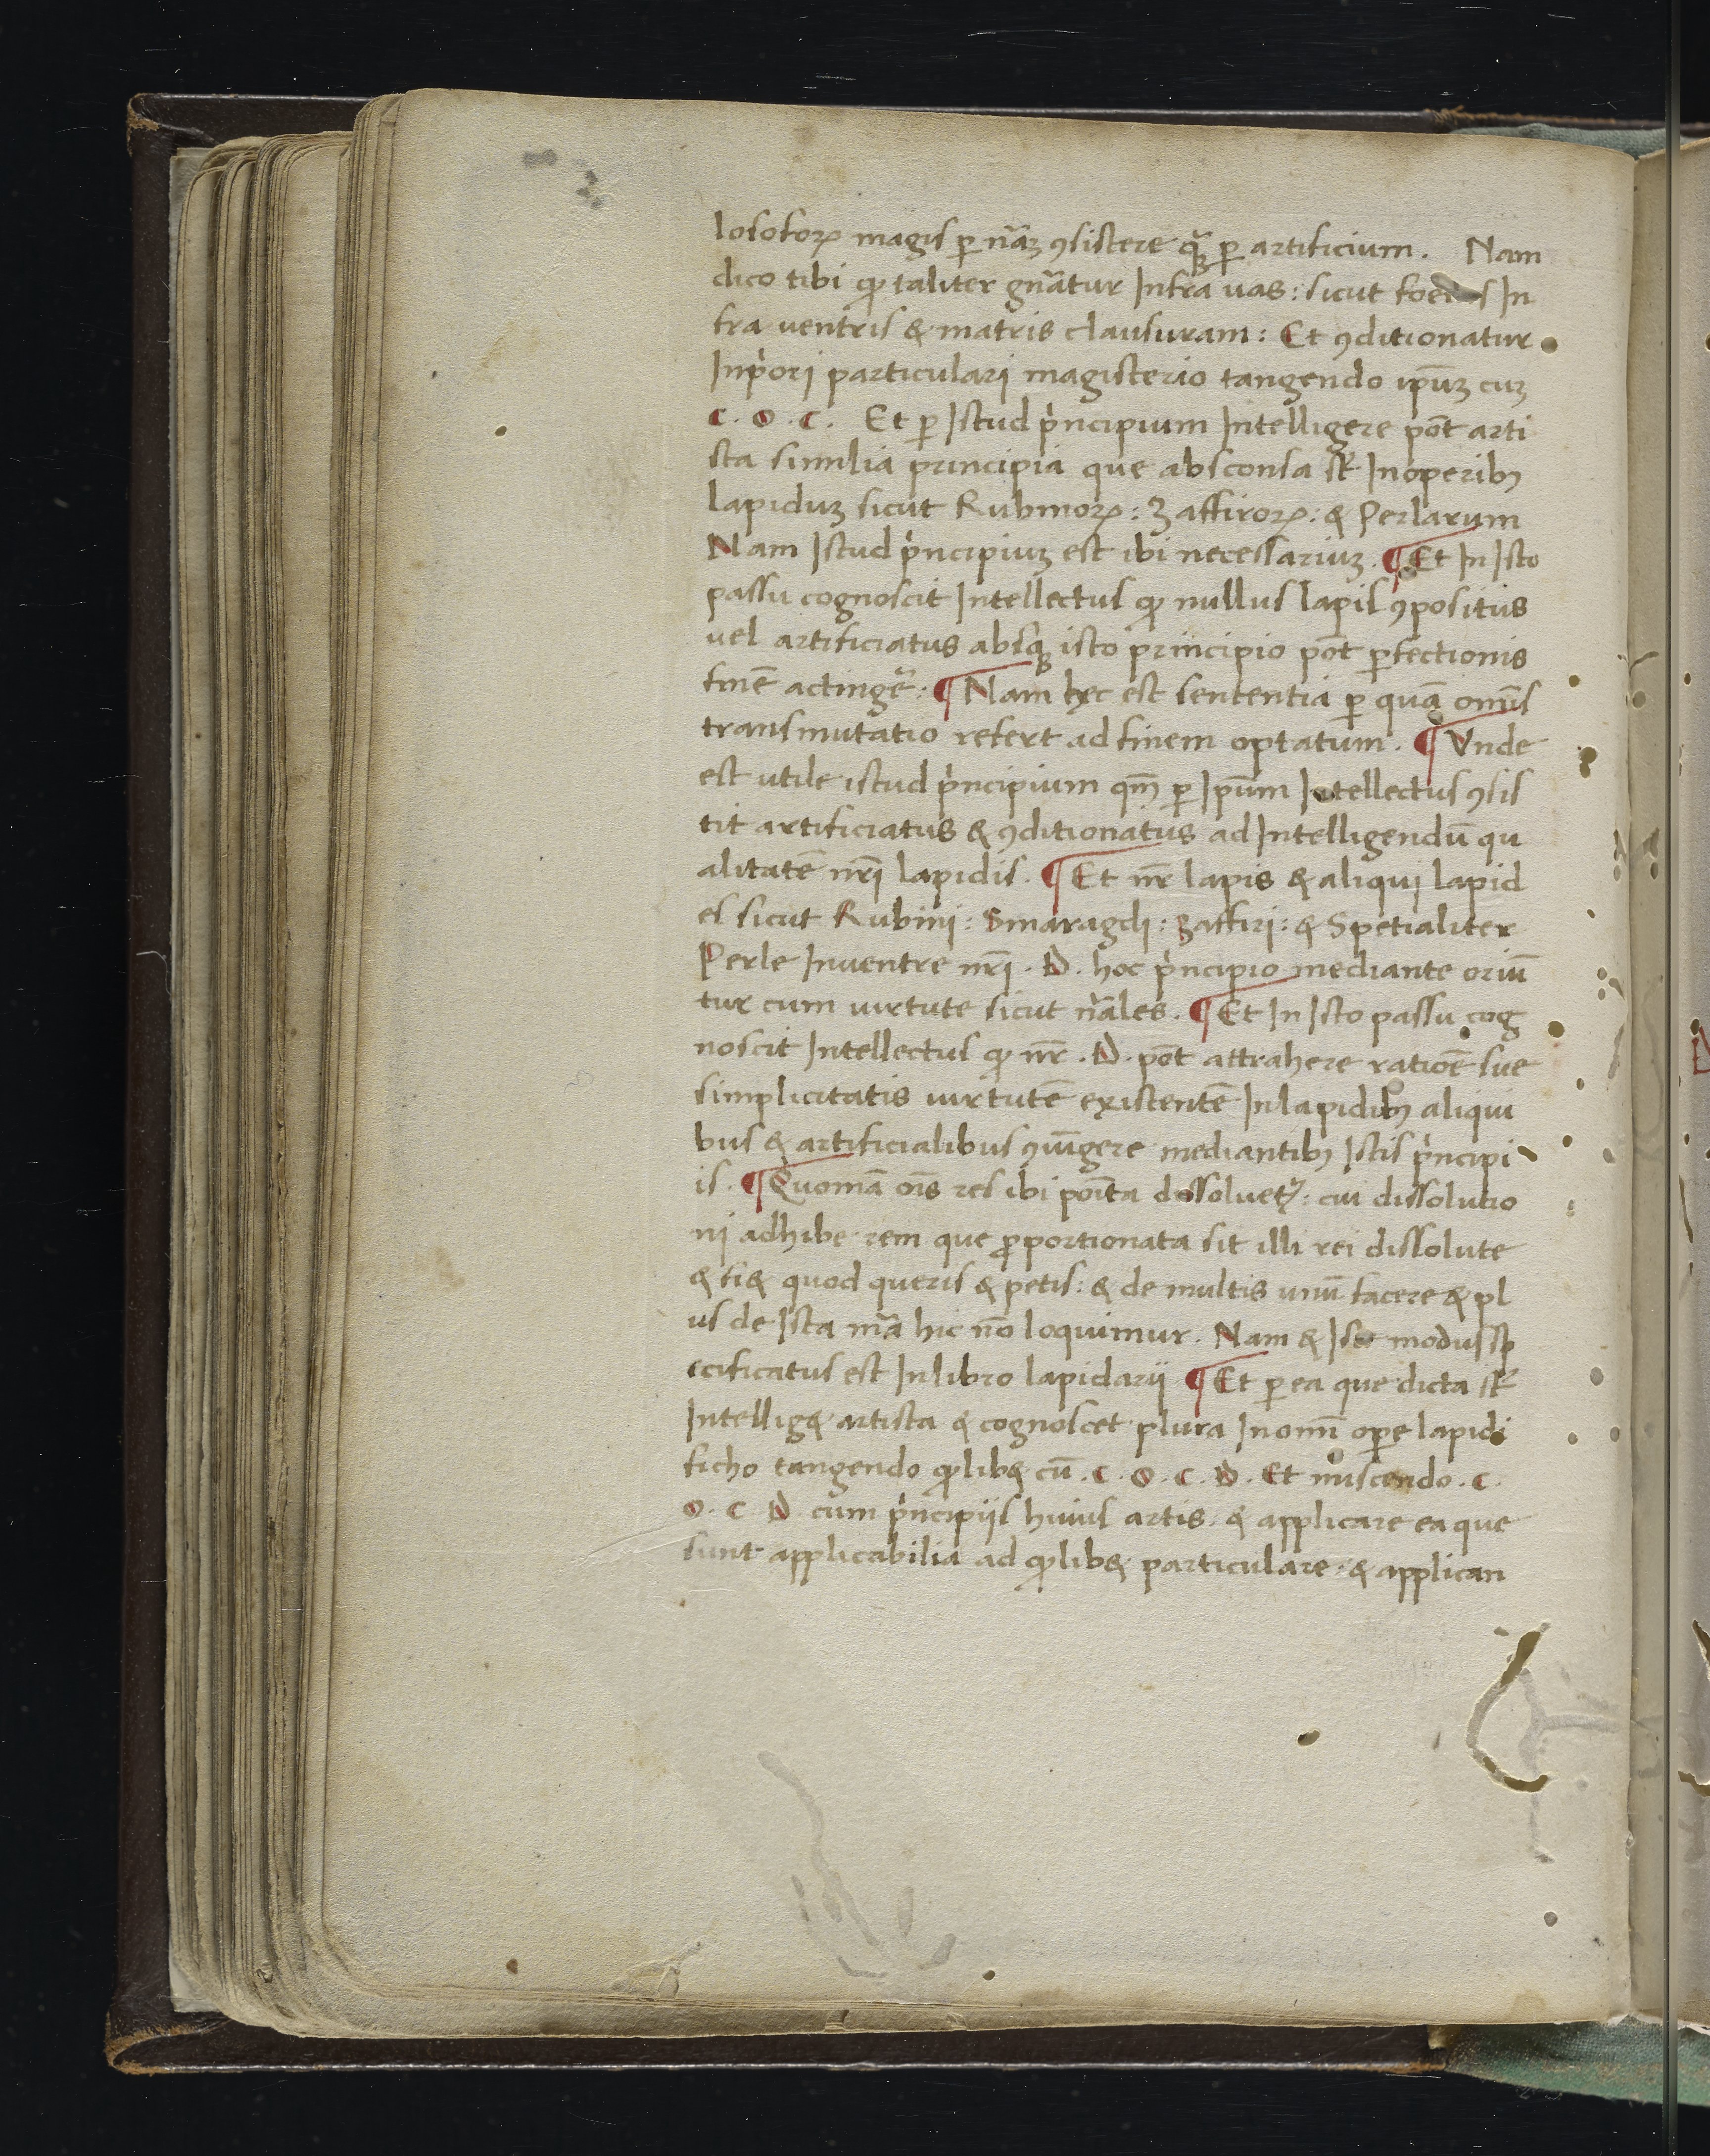 losofoꝝ magis ꝑ nãꝫ ꝯsistere q̃ꝫ ꝑ artificium. Nam
dico tibi ꝙ taliter gnãtur Infra uas: sicut foetus In
fra uentris & matris clausuram: Et ꝯditionatur
Inp̍ori particulari magisterio tangendo ip̃uꝫ cuꝫ
C. O. C. Et ꝑ Istud p̍ncipium Intelligere põt arti
sta similia principia que absconsa st̃ Inoperibꝫ
lapiduꝫ sicut Rubinoꝝ: Zaffiroꝝ: & Perlarum
Nam Istud p̍ncipiuꝫ est ibi necessariuꝫ. ¶ Et In Isto
passu cognoscit Intellectus ꝙ nullus lapis ꝯpositus
uel artificiatus absqꝫ isto principio põt ꝑfectionis
finẽ actingẽ: ¶ Nam hec est sententia ꝑ quã om̃is
transmutatio refert ad finem optatum. ¶ Vnde
est utile istud p̍ncipium qm̃ ꝑ Ip̃um Intellectus ꝯsis
tit artificiatus & ꝯditionatus ad Intelligendũ qu
alitatẽ nr̃i lapidis. ¶ Et nr̃ lapis & aliqui lapid
es sicut Rubini: Smaragdi: Zaffiri: & Spetialiter
Perle Inuentre nr̃i. D. hoc p̍ncipio mediante oriũ
tur cum uirtute sicut nãles. ¶ Et In Isto passu cog
noscit Intellectus ꝙ nr̃. D. põt attrahere rationẽ sue
simplicitatis uirtutẽ existentẽ Inlapidibꝫ aliqui
bus & artificialibus ꝯiũgere mediantibꝫ Istis p̍ncipi
is. ¶ Quoniã oĩs res ibi poñta dissoluet᷑: cui dissolutio
ni adhibe rem que ꝓportionata sit illi rei dissolute
& fi& quod queris & petis: & de multis unũ facere & pl
us de Ista mã hic nõ loquimur. Nam & Iste modus sp
ecificatus est Inlibro lapidarii ¶ Et ꝑ ea que dicta st̃
Intellig& artista & cognoscet plura Inom̃i oꝑe lapidi
ficho tangendo ꝙlib& cũ. C. O. C. D. Et miscendo. C.
O. C D. cum p̍ncipiis huius artis. & applicare ea que
sunt applicabilia ad ꝙlib& particulare: & applican